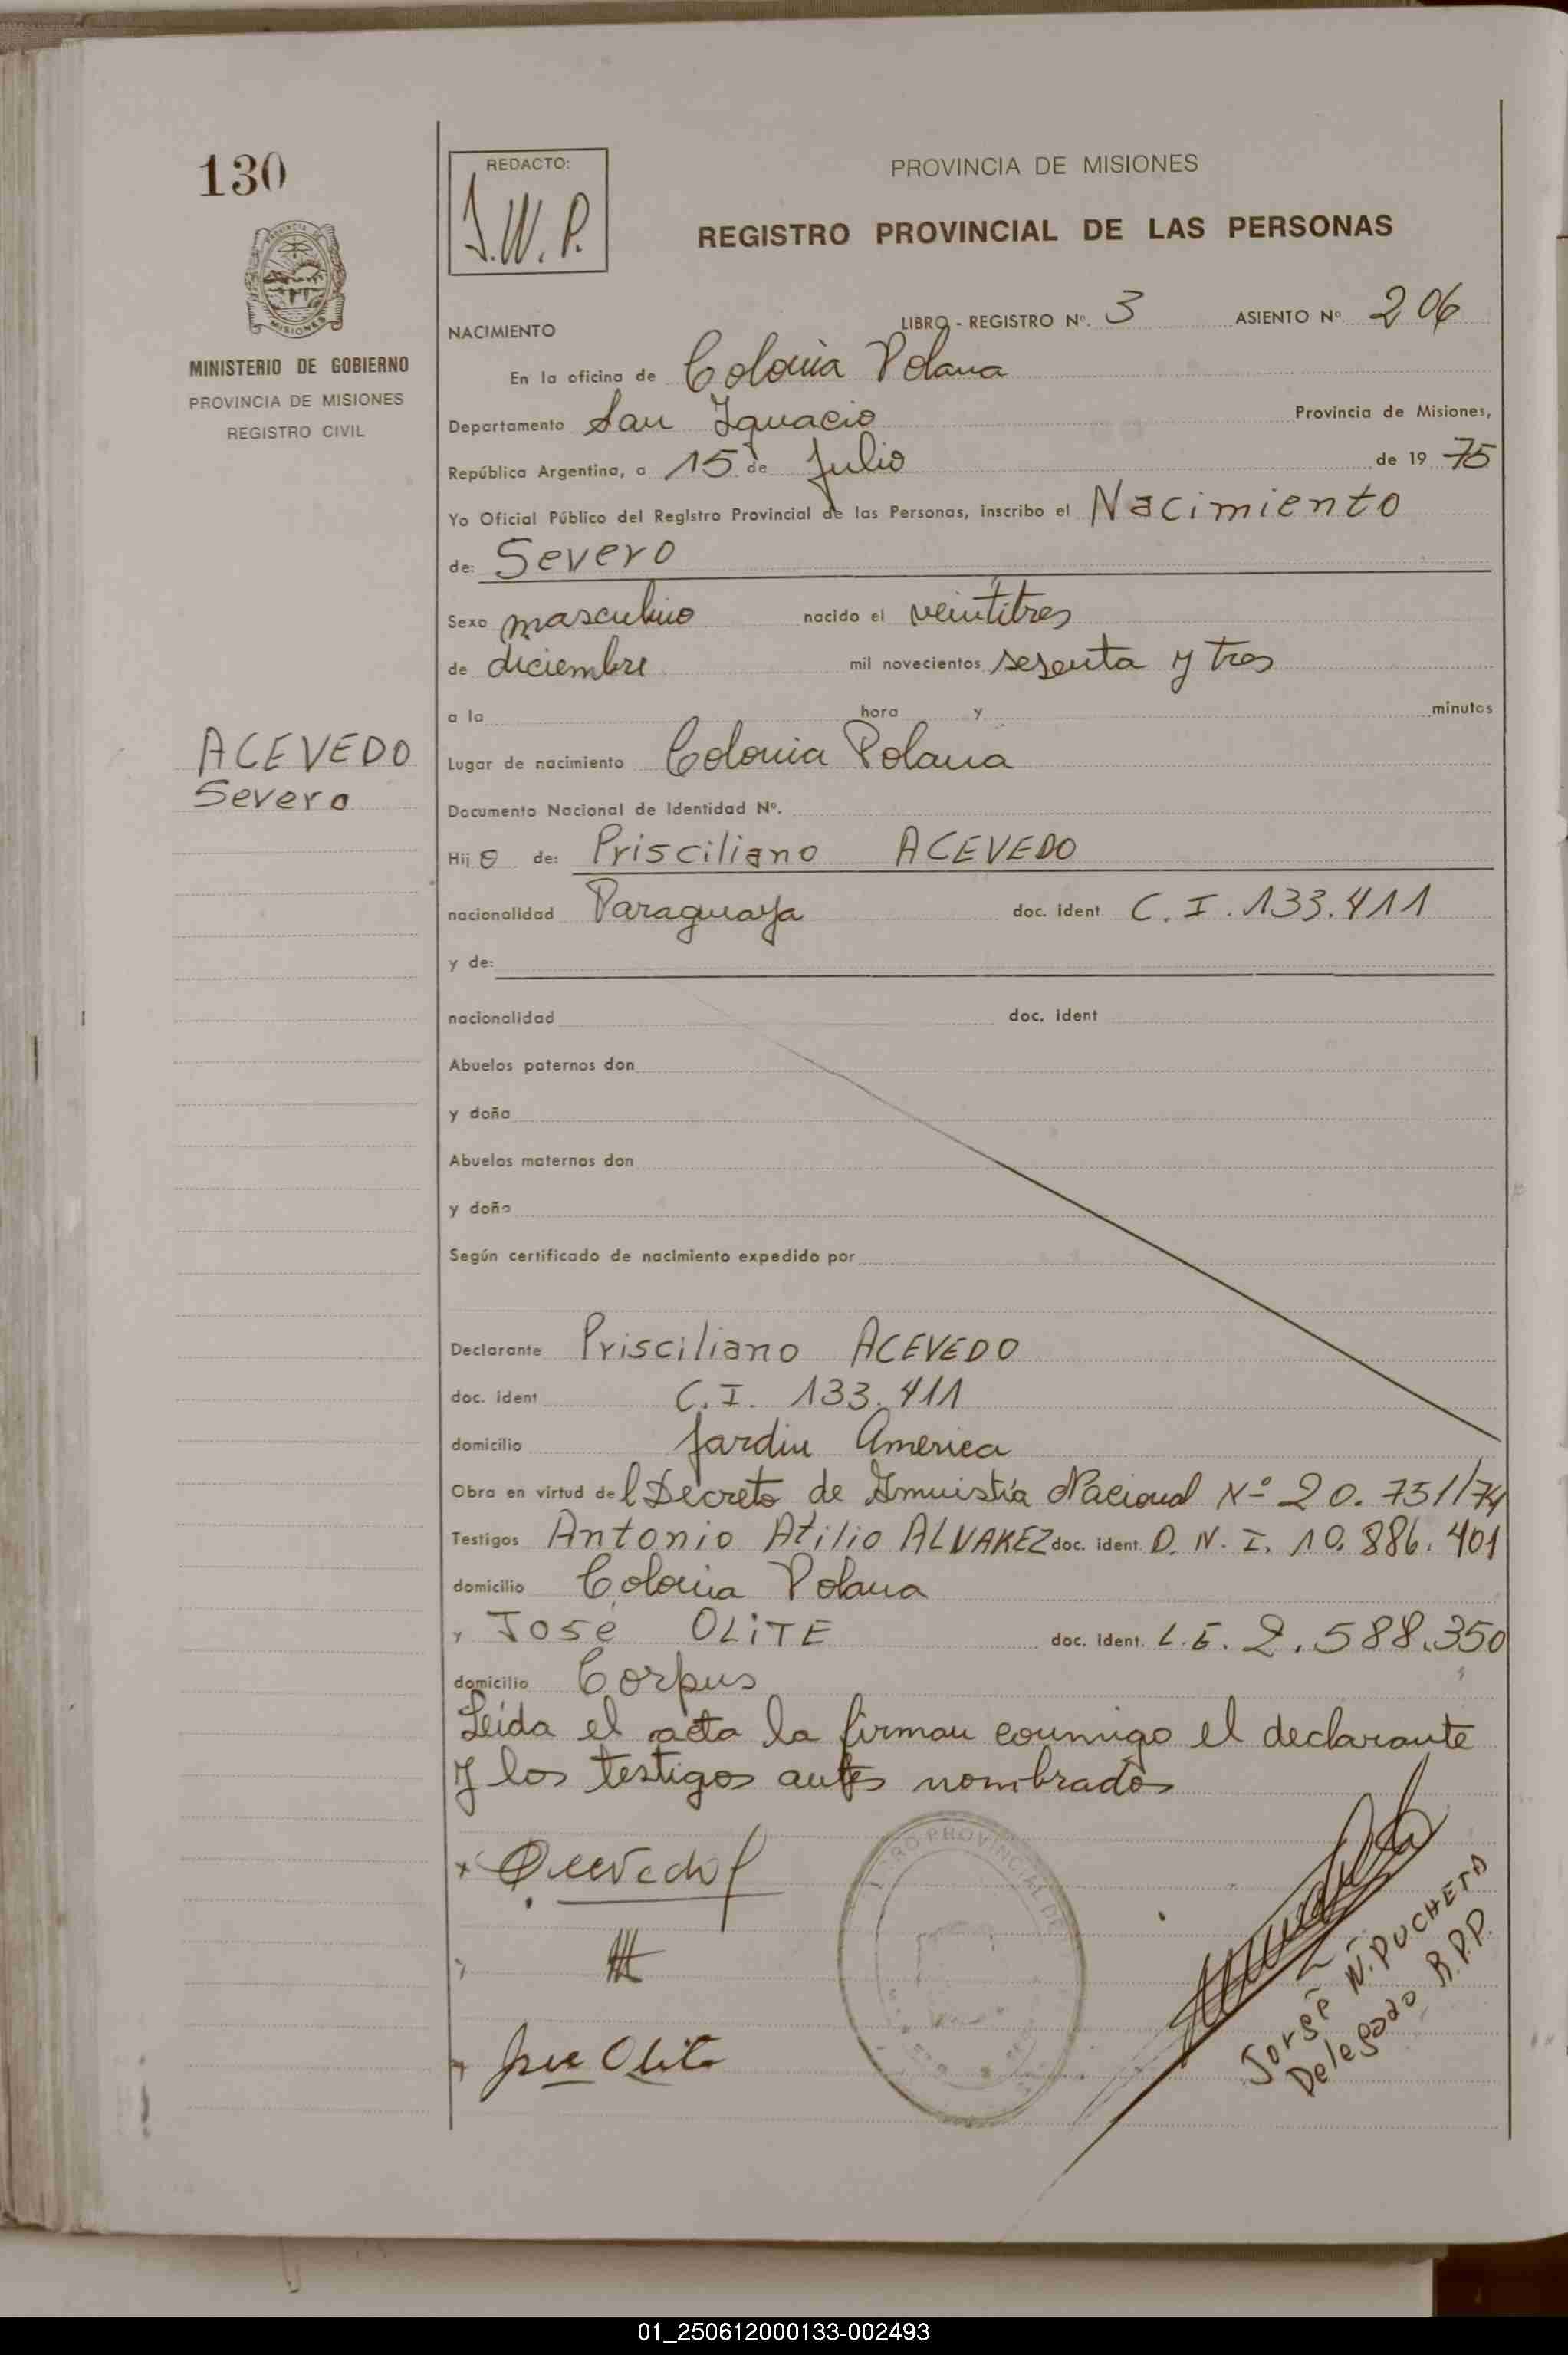 130
MINISTERIO DE GOBIERNO
PROVINCIA DE MISIONES
REGISTRO CIVIL
ACEVEDO
Severo
REDACTO:
J.W.P.
PROVINCIA DE MISIONES
REGISTRO PROVINCIAL DE LAS PERSONAS
NACIMIENTO LIBRO - REGISTRO Nº. 3 ASIENTO Nº 206
En la oficina de Colonia Polana
Departamento San Ignacio Provincia de Misiones,
República Argentina, a 15 de Julio de 19 75
Yo Oficial Público del Registro Provincial de las Personas, inscribo el Nacimiento
de: Severo
Sexo masculino nacido el veintitres
de diciembre mil novecientos sesenta y tres
a la hora y minutos
Lugar de nacimiento Colonia Polana
Documento Nacional de Identidad Nº.
Hijo de: Prisciliano ACEVEDO
nacionalidad Paraguaya doc. ident C. I. 133.411
y de:
nacionalidad doc. ident
Abuelos paternos don
y doña
Abuelos maternos don
y doña
Según certificado de nacimiento expedido por
Declarante Prisciliano ACEVEDO
doc. ident C. I. 133.411
domicilio Jardin America
Obra en virtud del Decreto de Amnistía Nacional Nº 20.751/74
Testigos Antonio Atilio ALVAREZ doc. ident. D. N. I. 10.886.401
domicilio Colonia Polana
y José OLiTE doc. Ident. L.E. 2.588.350
domicilio Corpus
Leída el acta la firman conmigo el declarante
y los testigos antes nombrados
Jose Olite
Jorge N. PUCHETA
Delegado R.P.P.
01_250612000133-002493